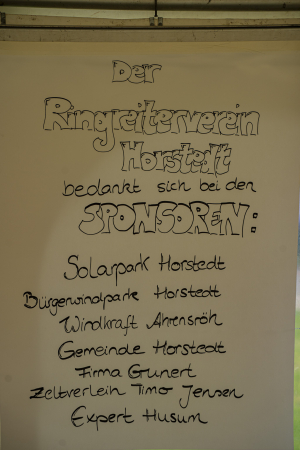 Der
Ringreiterverein
Horstedt
bedankt sich bei den
SPONSOREN:
Solarpark Horstedt
Bürgerwindparke Horstedt
Windkraft Ahrensröh
Gemeinde Horstedt
Firma Gunert
Zeltverleih Timo Jensen
Expert Husum